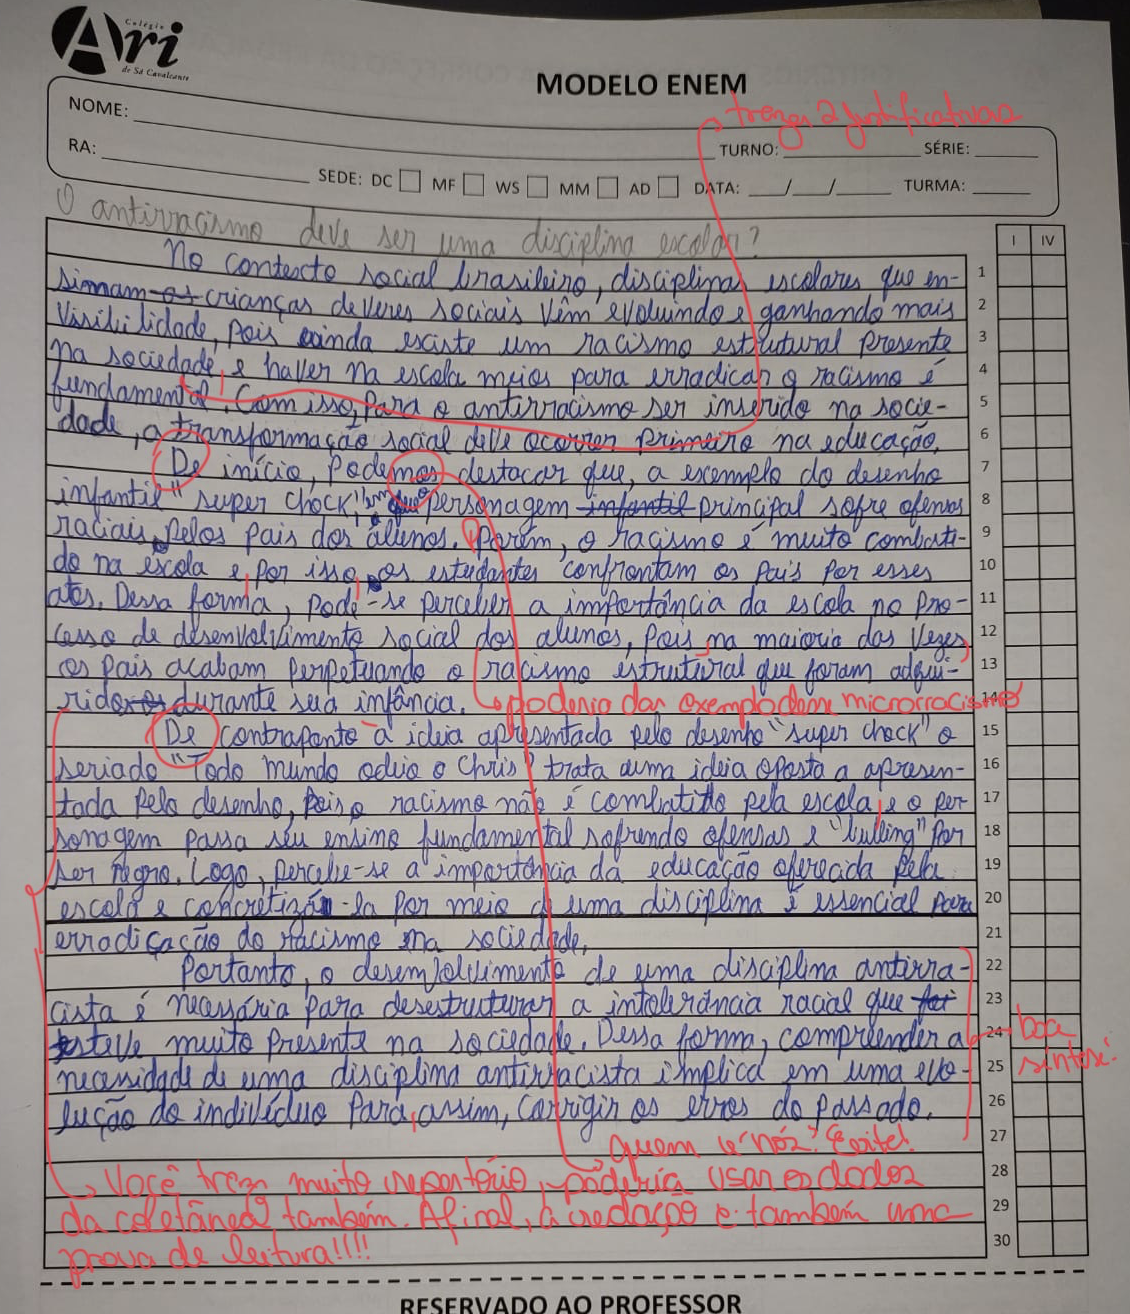 Colégio
Ari
de Sá Cavalcante
MODELO ENEM
trazer 2 justificativas
NOME:
RA:
TURNO: SÉRIE:
SEDE: DC MF WS MM AD DATA: / / TURMA:
O antirracismo deve ser uma disciplina escolar?
I IV
No contexto social brasileiro, disciplinas escolares que en- 1
sinam os crianças deveres sociais vêm evoluindo e ganhando mais 2
visibilidade, pois ainda existe um racismo estrutural presente 3
na sociedade, e haver na escola meios para erradicar o racismo é 4
fundamental. Com isso, para o antirracismo ser inserido na socie- 5
dade, a transformação social deve ocorrer primeiro na educação. 6
De início, podemos destacar que, a exemplo do desenho 7
infantil "super chock", personagem infantil principal sofre ofensas 8
raciais pelos pais dos alunos. Porém, o racismo é muito combati- 9
do na escola e, por isso, os estudantes confrontam os pais por esses 10
atos. Dessa forma, pode-se perceber a importância da escola no pro- 11
cesso de desenvolvimento social dos alunos, pois, na maioria das vezes, 12
os pais acabam perpetuando o racismo estrutural que foram adqui- 13
ridos durante sua infância. 14
poderia dar exemplo de microrracismo
De contraponto à ideia apresentada pelo desenho "super chock" o 15
seriado "Todo mundo odeia o Chris" trata uma ideia oposta a apresen- 16
tada pelo desenho, pois o racismo não é combatido pela escola, e o per- 17
sonagem passa seu ensino fundamental sofrendo ofensas e "bulling" por 18
ser negro. Logo, percebe-se a importância da educação oferecida pela 19
escola e concretizá-la por meio de uma disciplina é essencial para 20
erradicação do racismo na sociedade. 21
Portanto, o desenvolvimento de uma disciplina antirra- 22
cista é necessária para desestruturar a intolerância racial que foi 23
esteve muito presente na sociedade. Dessa forma, compreender a 24
necessidade de uma disciplina antirracista implica em uma evo- 25
lução do indivíduo para, assim, corrigir os erros do passado. 26
boa
síntese!
27
quem é "nós"? Evite!
Você traz muito repertório, poderia usar os dados 28
da coletânea também. Afinal, a redação é também uma 29
prova de leitura!!!! 30
RESERVADO AO PROFESSOR